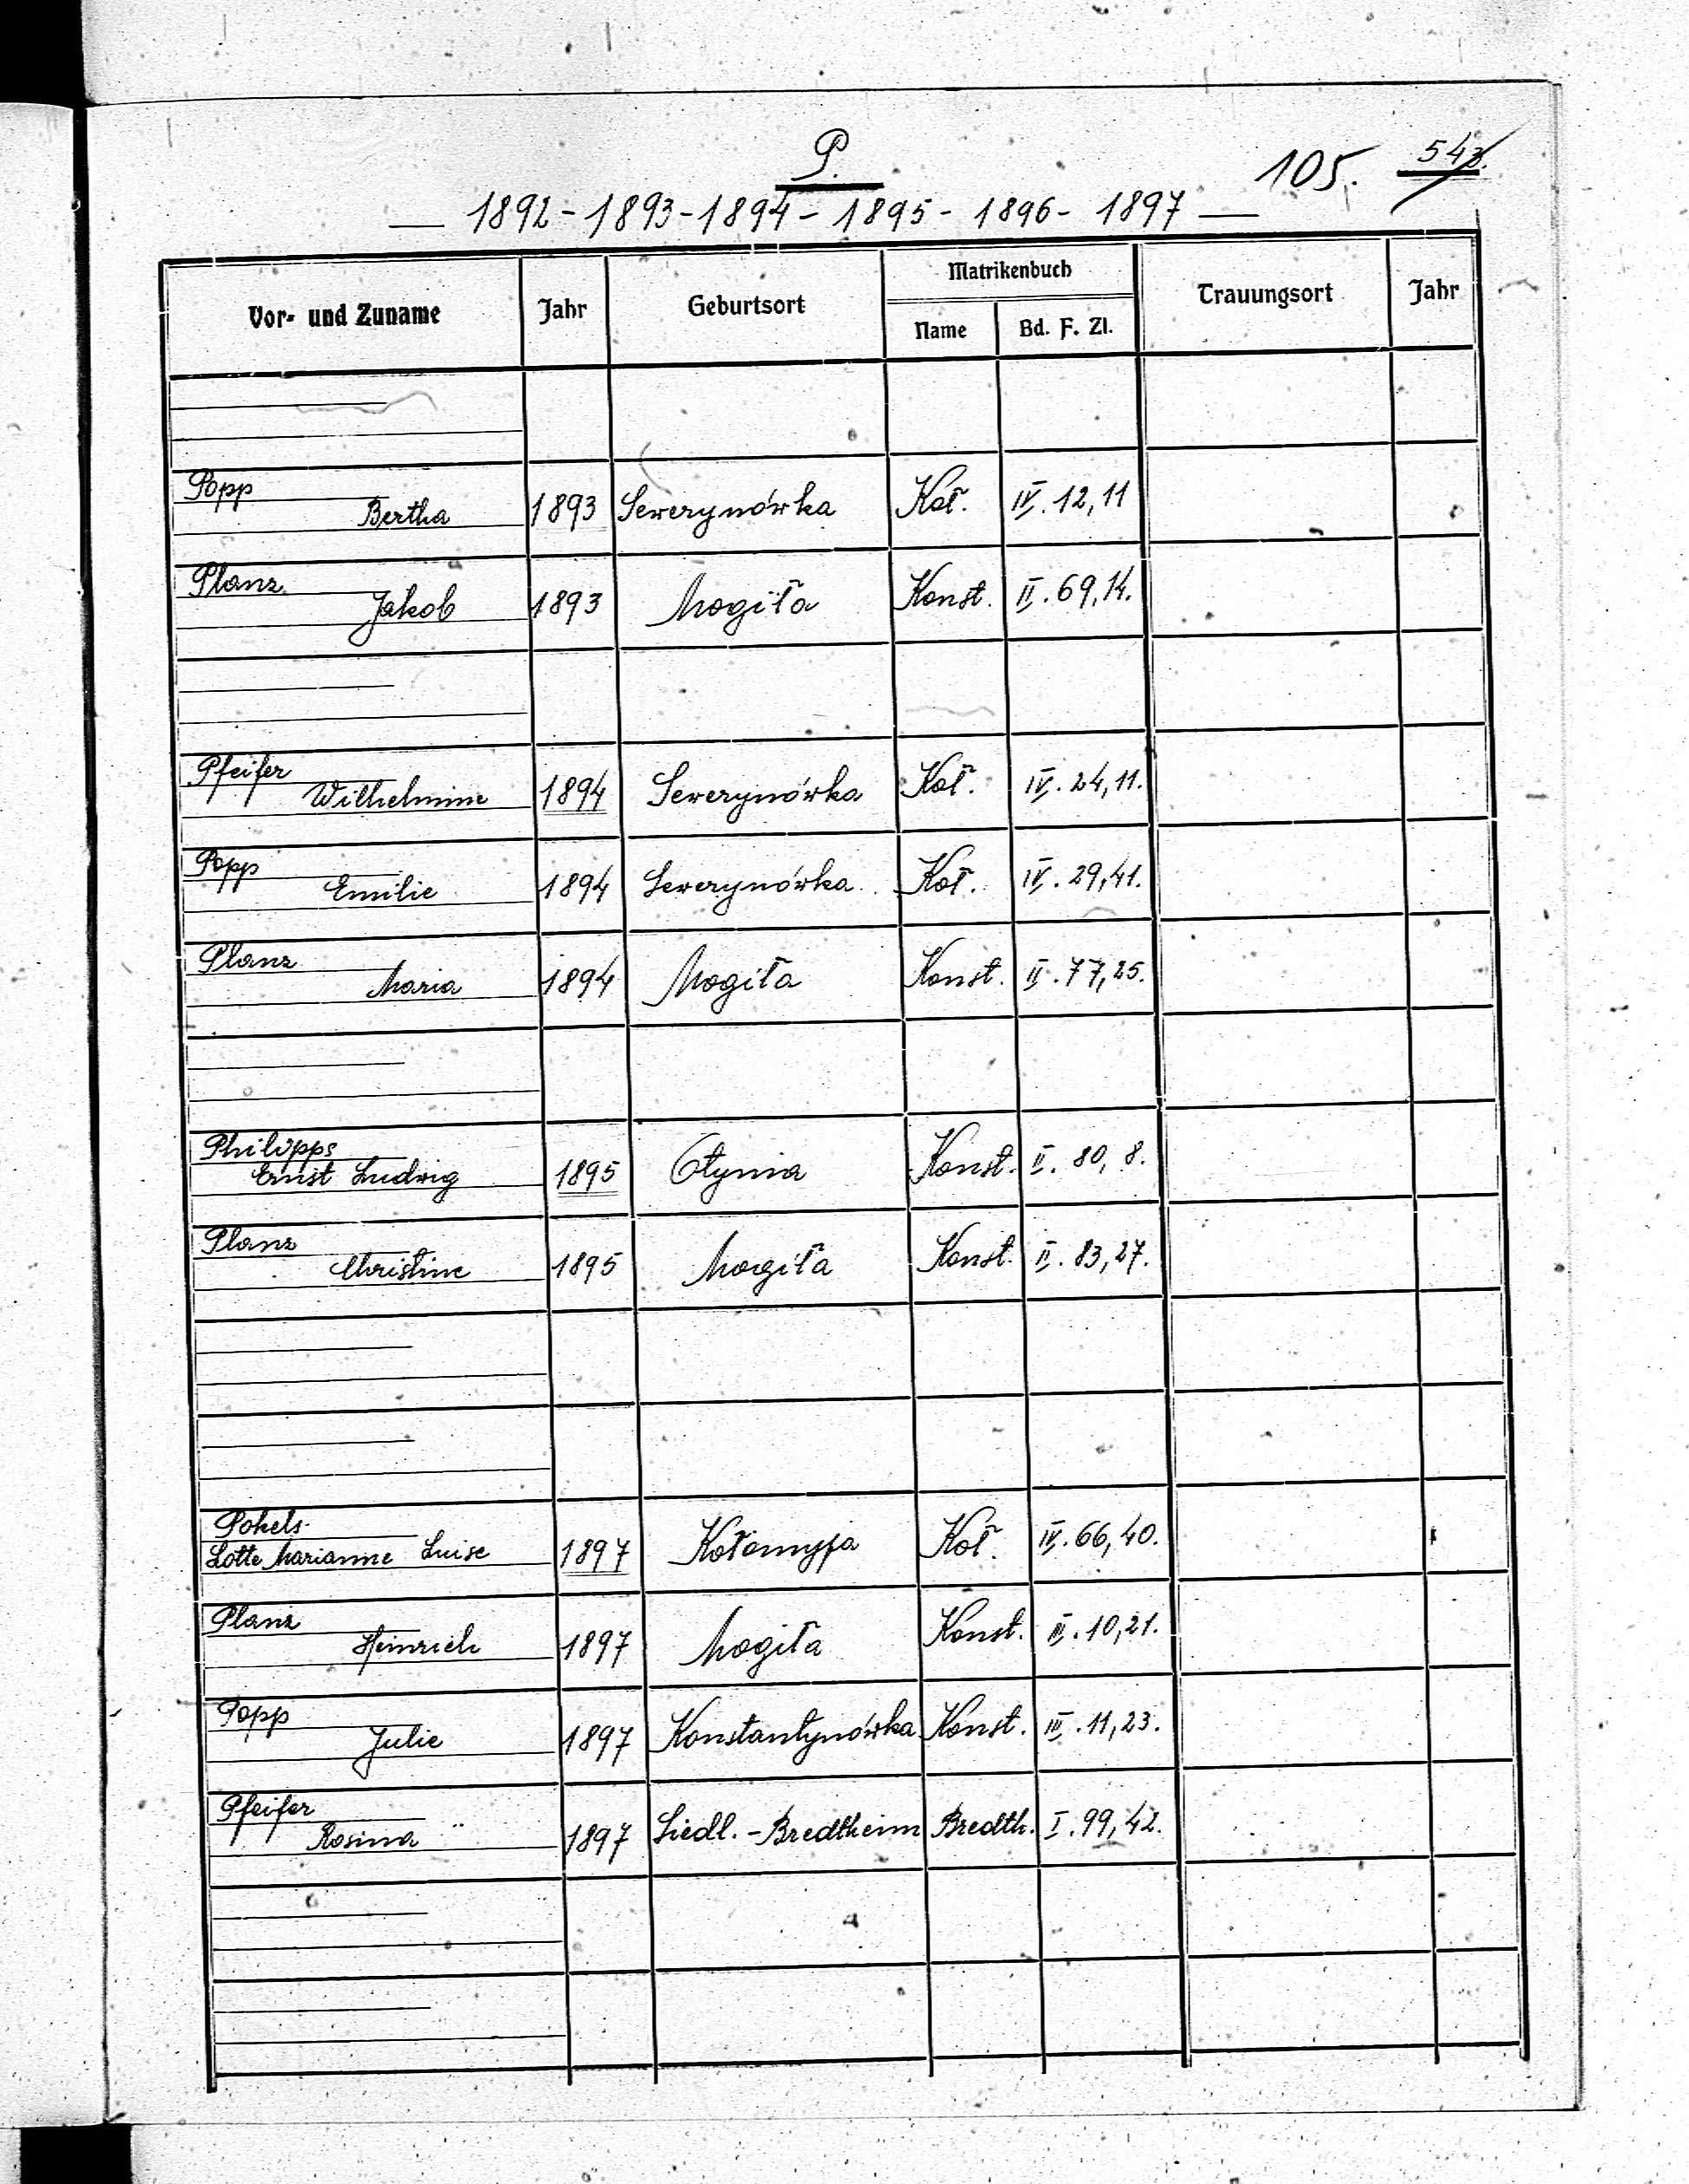 P.
105. 543.
1892 - 1893 - 1894 - 1895 - 1896 - 1897
Vor- und Zuname Jahr Geburtsort Matrikenbuch Trauungsort Jahr
Name Bd. F. Zl.
Popp
Bertha 1893 Sewerynówka Koł. IV. 12, 11
Planz
Jakob 1893 Mogiła Konst. II. 69, 14.
Pfeifer
Wilhelmine 1894 Sewerynówka Koł. IV. 24, 11.
Popp
Emilie 1894 Sewerynówka Koł. IV. 29, 41.
Planz
Maria 1894 Mogiła Konst. II. 77, 25.
Philipps
Ernst Ludwig 1895 Otynia Konst. II. 80, 8.
Planz
Christine 1895 Mogiła Konst. II. 83, 27.
Pokels
Lotte Marianne Luise 1897 Kołomyja Koł. IV. 66, 40.
Planz
Heinrich 1897 Mogiła Konst. III. 10, 21.
Popp
Julie 1897 Konstantynówka Konst. III. 11, 23.
Pfeifer
Rosina 1897 Siedl. - Bredtheim Bredth. I. 99, 42.